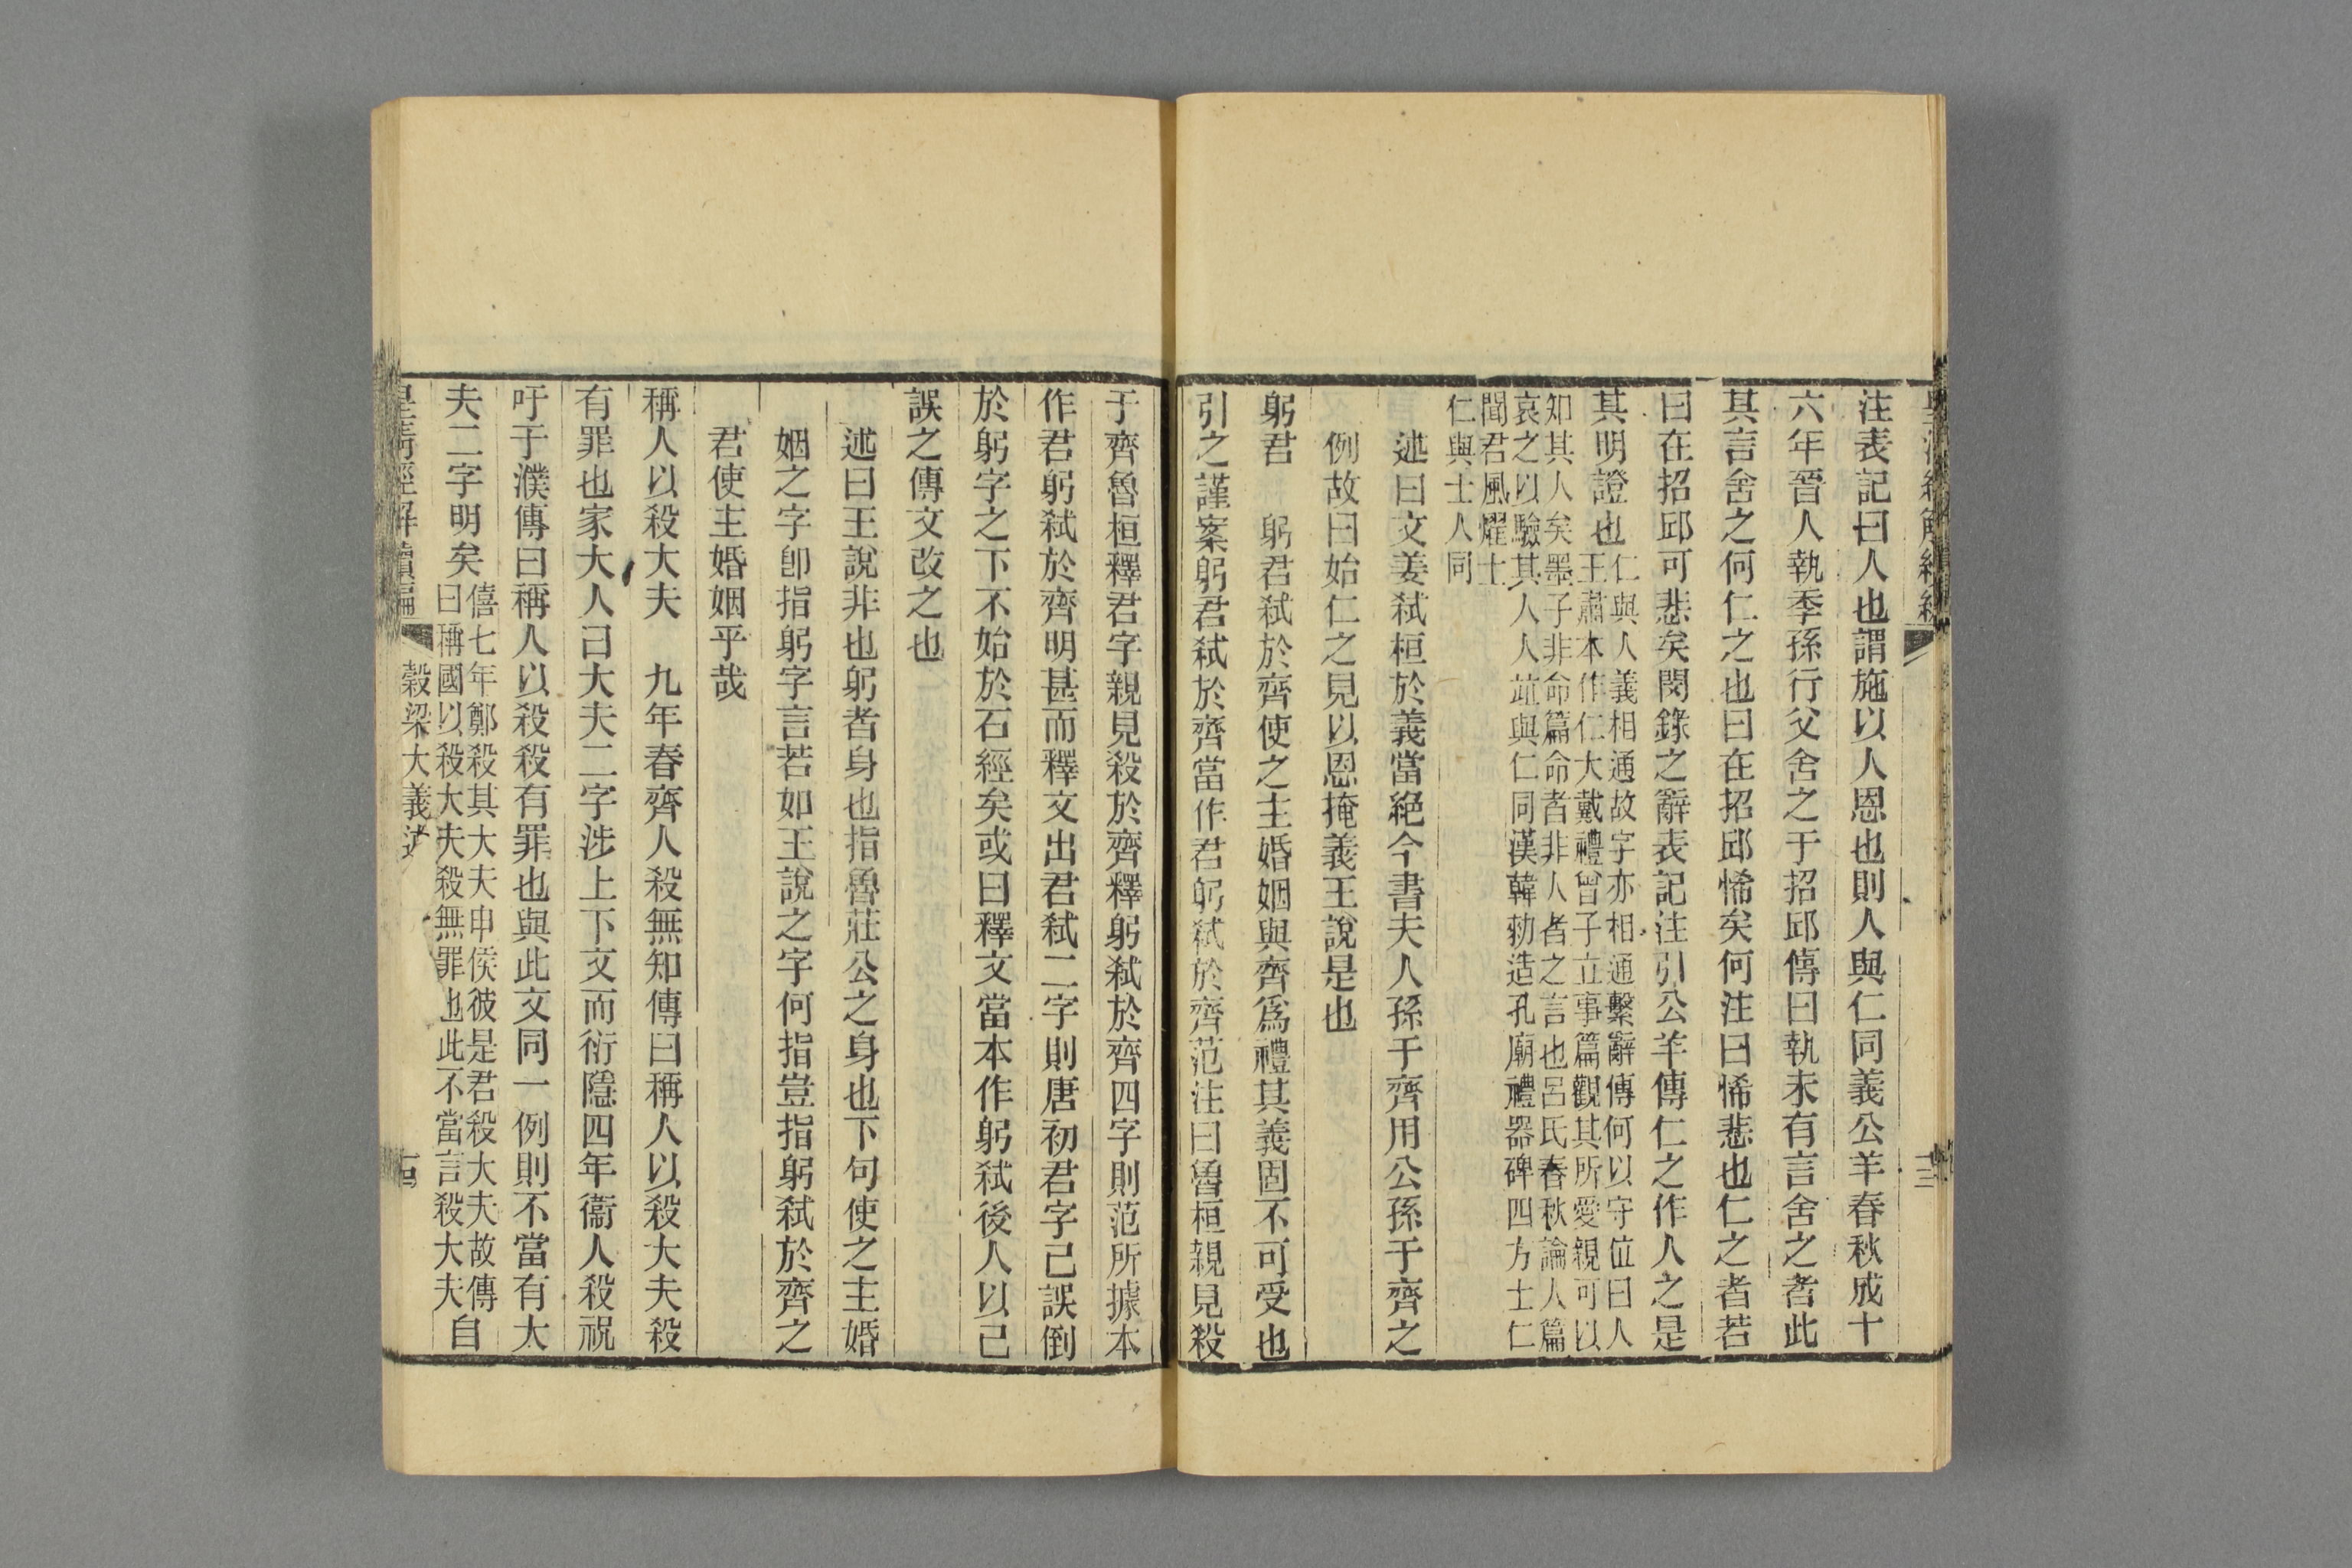 注表記曰人也謂施以人恩也則人與仁同義公羊春秋成十
六年晉人執季孫行父舍之于招邱傳曰執未有言舍之者此
其言舍之何仁之也曰在招邱悕矣何注曰悕悲也仁之者若
曰在招邱可悲矣閔錄之辭表記注引公羊傳仁之作人之是
其明證也仁與人義相通故字亦相通繫辭傳何以守位曰人
王肅本作仁大戴禮曾子立事篇觀其所愛親可以
知其人矣墨子非命篇命者非人者之言也呂氏春秋論人篇
哀之以驗其人人竝與仁同漢韓勑造孔廟禮器碑四方士仁
聞君風燿士
仁與士人同
述曰文姜弒桓於義當絕今書夫人孫于齊用公孫于齊之
例故曰始仁之見以恩掩義王說是也
躬君　躬君弒於齊使之主婚姻與齊為禮其義固不可受也
引之謹案躬君弒於齊當作君躬弒於齊范注曰魯桓親見殺
于齊魯桓釋君字親見殺於齊釋躬弒於齊四字則范所據本
作君躬弒於齊明甚而釋文出君弒二字則唐初君字已誤倒
於躬字之下不始於石經矣或曰釋文當本作躬弒後人以已
誤之傳文改之也
述曰王說非也躬者身也指魯莊公之身也下句使之主婚
姻之字卽指躬字言若如王說之字何指豈指躬弒於齊之
君使主婚姻乎哉
稱人以殺大夫　九年春齊人殺無知傳曰稱人以殺大夫殺
有罪也家大人曰大夫二字涉上下文而衍隱四年衞人殺祝
吁于濮傳曰稱人以殺殺有罪也與此文同一例則不當有大
夫二字明矣僖七年鄭殺其大夫申侯彼是君殺大夫故傳
曰稱國以殺大夫殺無罪也此不當言殺大夫自
皇清經解續編
穀梁大義述